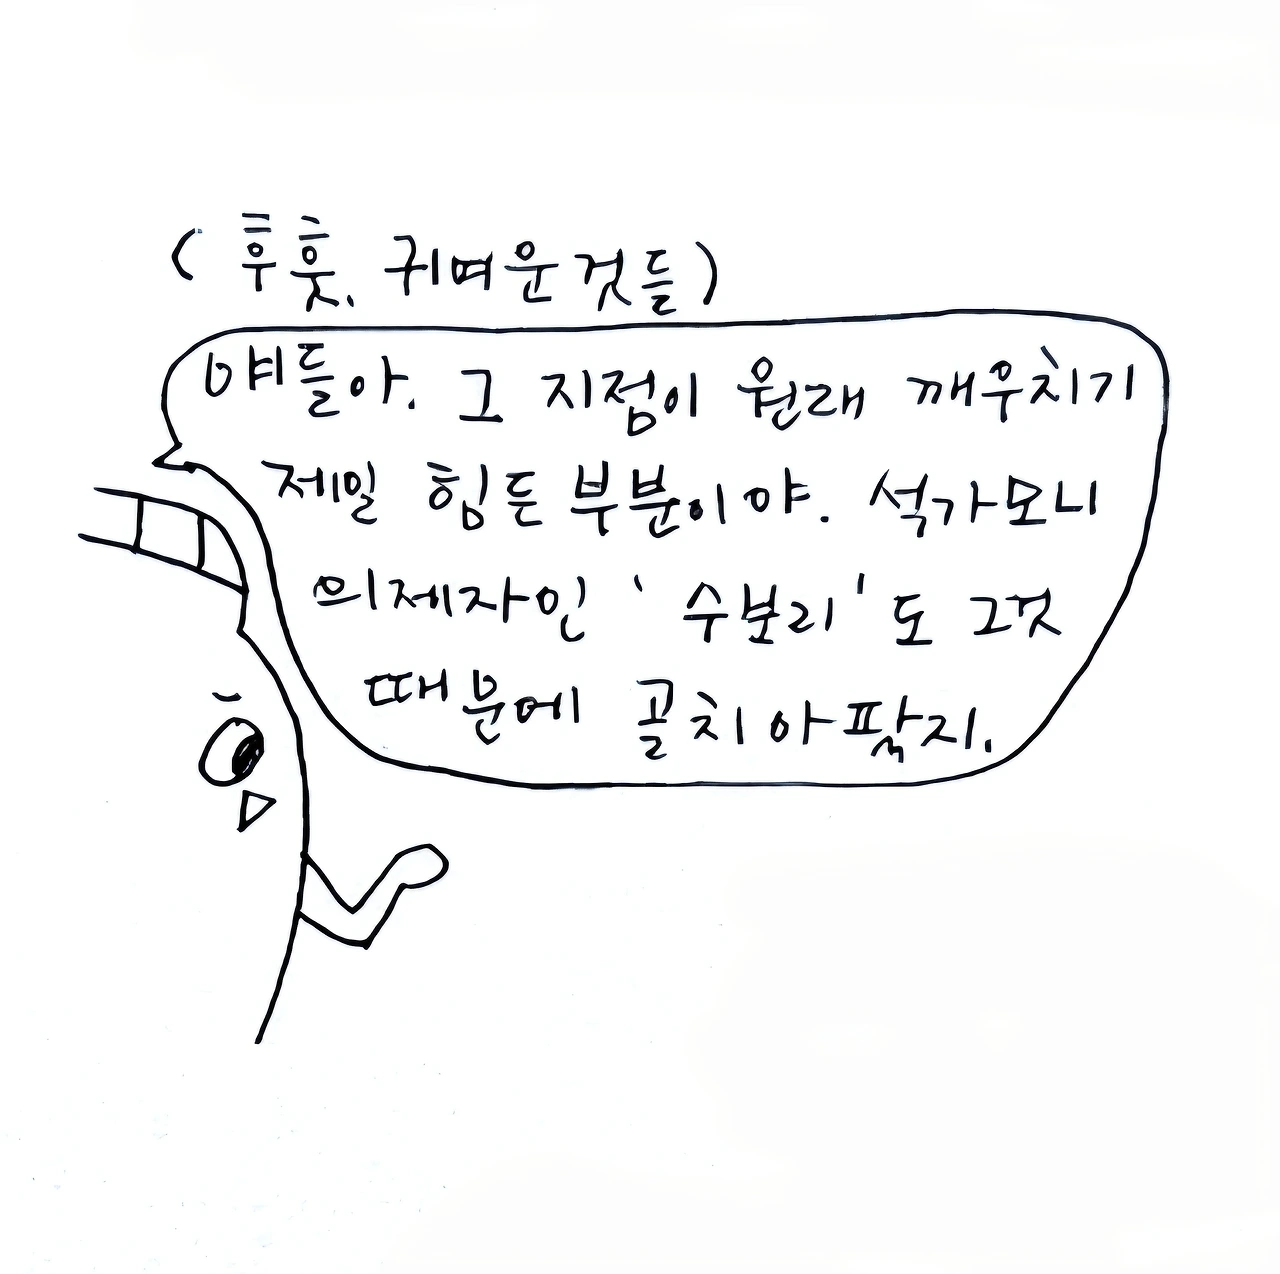 (후훗. 귀여운것들)
얘들아. 그 지점이 원래 깨우치기
제일 힘든 부분이야. 석가모니
의제자인 '수보리'도 그것
때문에 골치 아팠지.